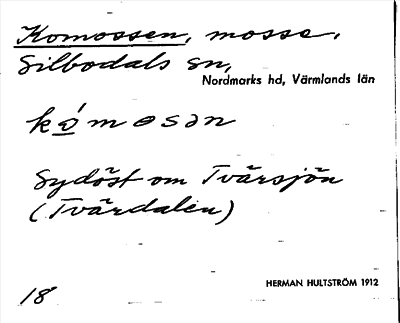 Komossen, mosse,
Silbodals sn,
Nordmarks hd, Värmlands län
kómosən
Sydöst om Tvärsjön
(Tvärdalen)
HERMAN HULTSTRÖM 1912
18